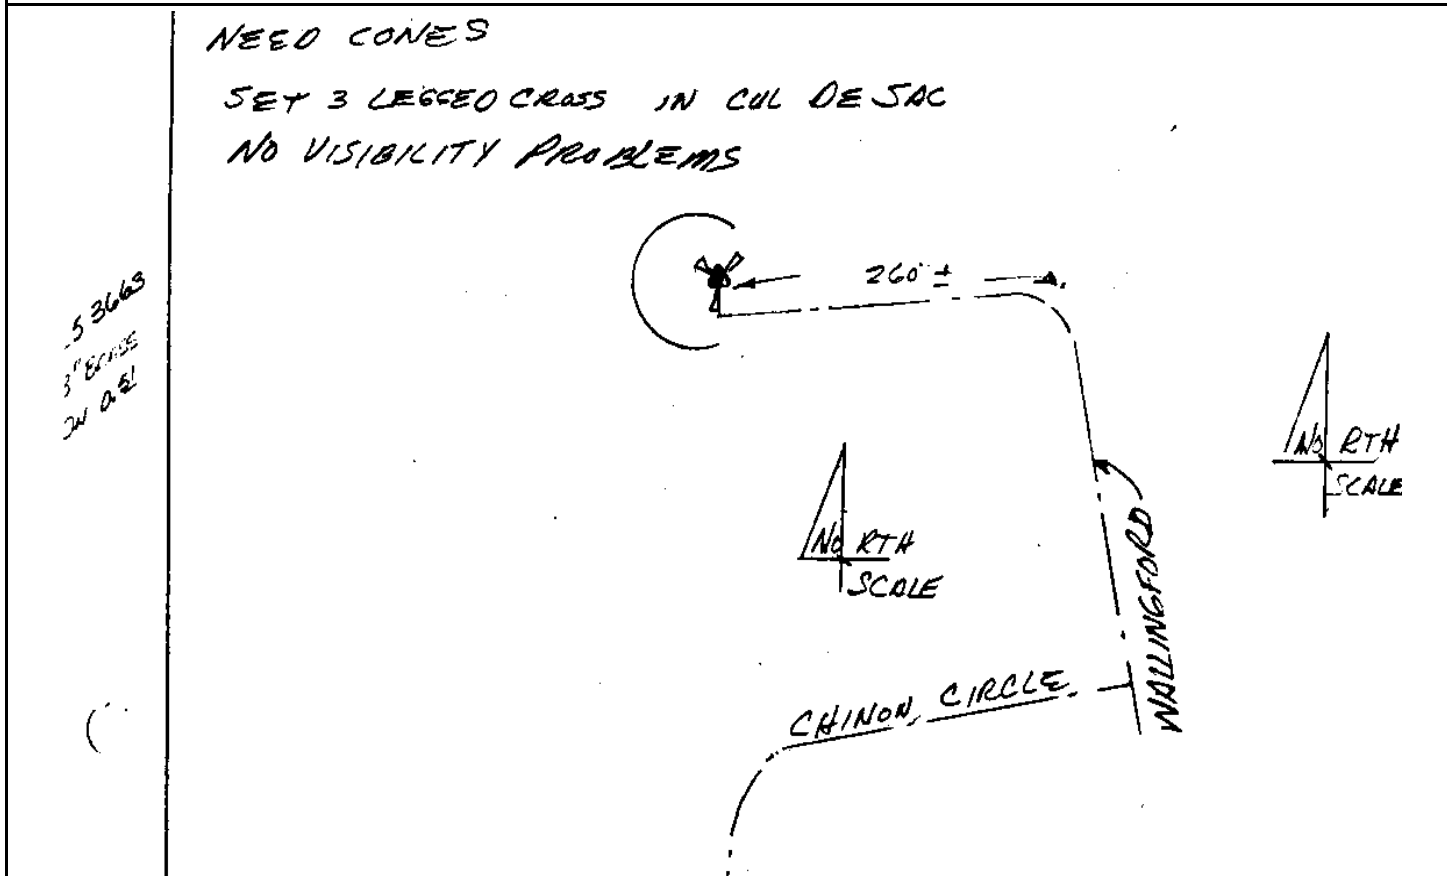 NEED CONES
SET 3 LEGGED CROSS IN CUL DE SAC
NO VISIBILITY PROBLEMS
260' ±
53663
3"
NORTH
SCALE
NORTH
SCALE
WALLINGFORD
CHINON CIRCLE